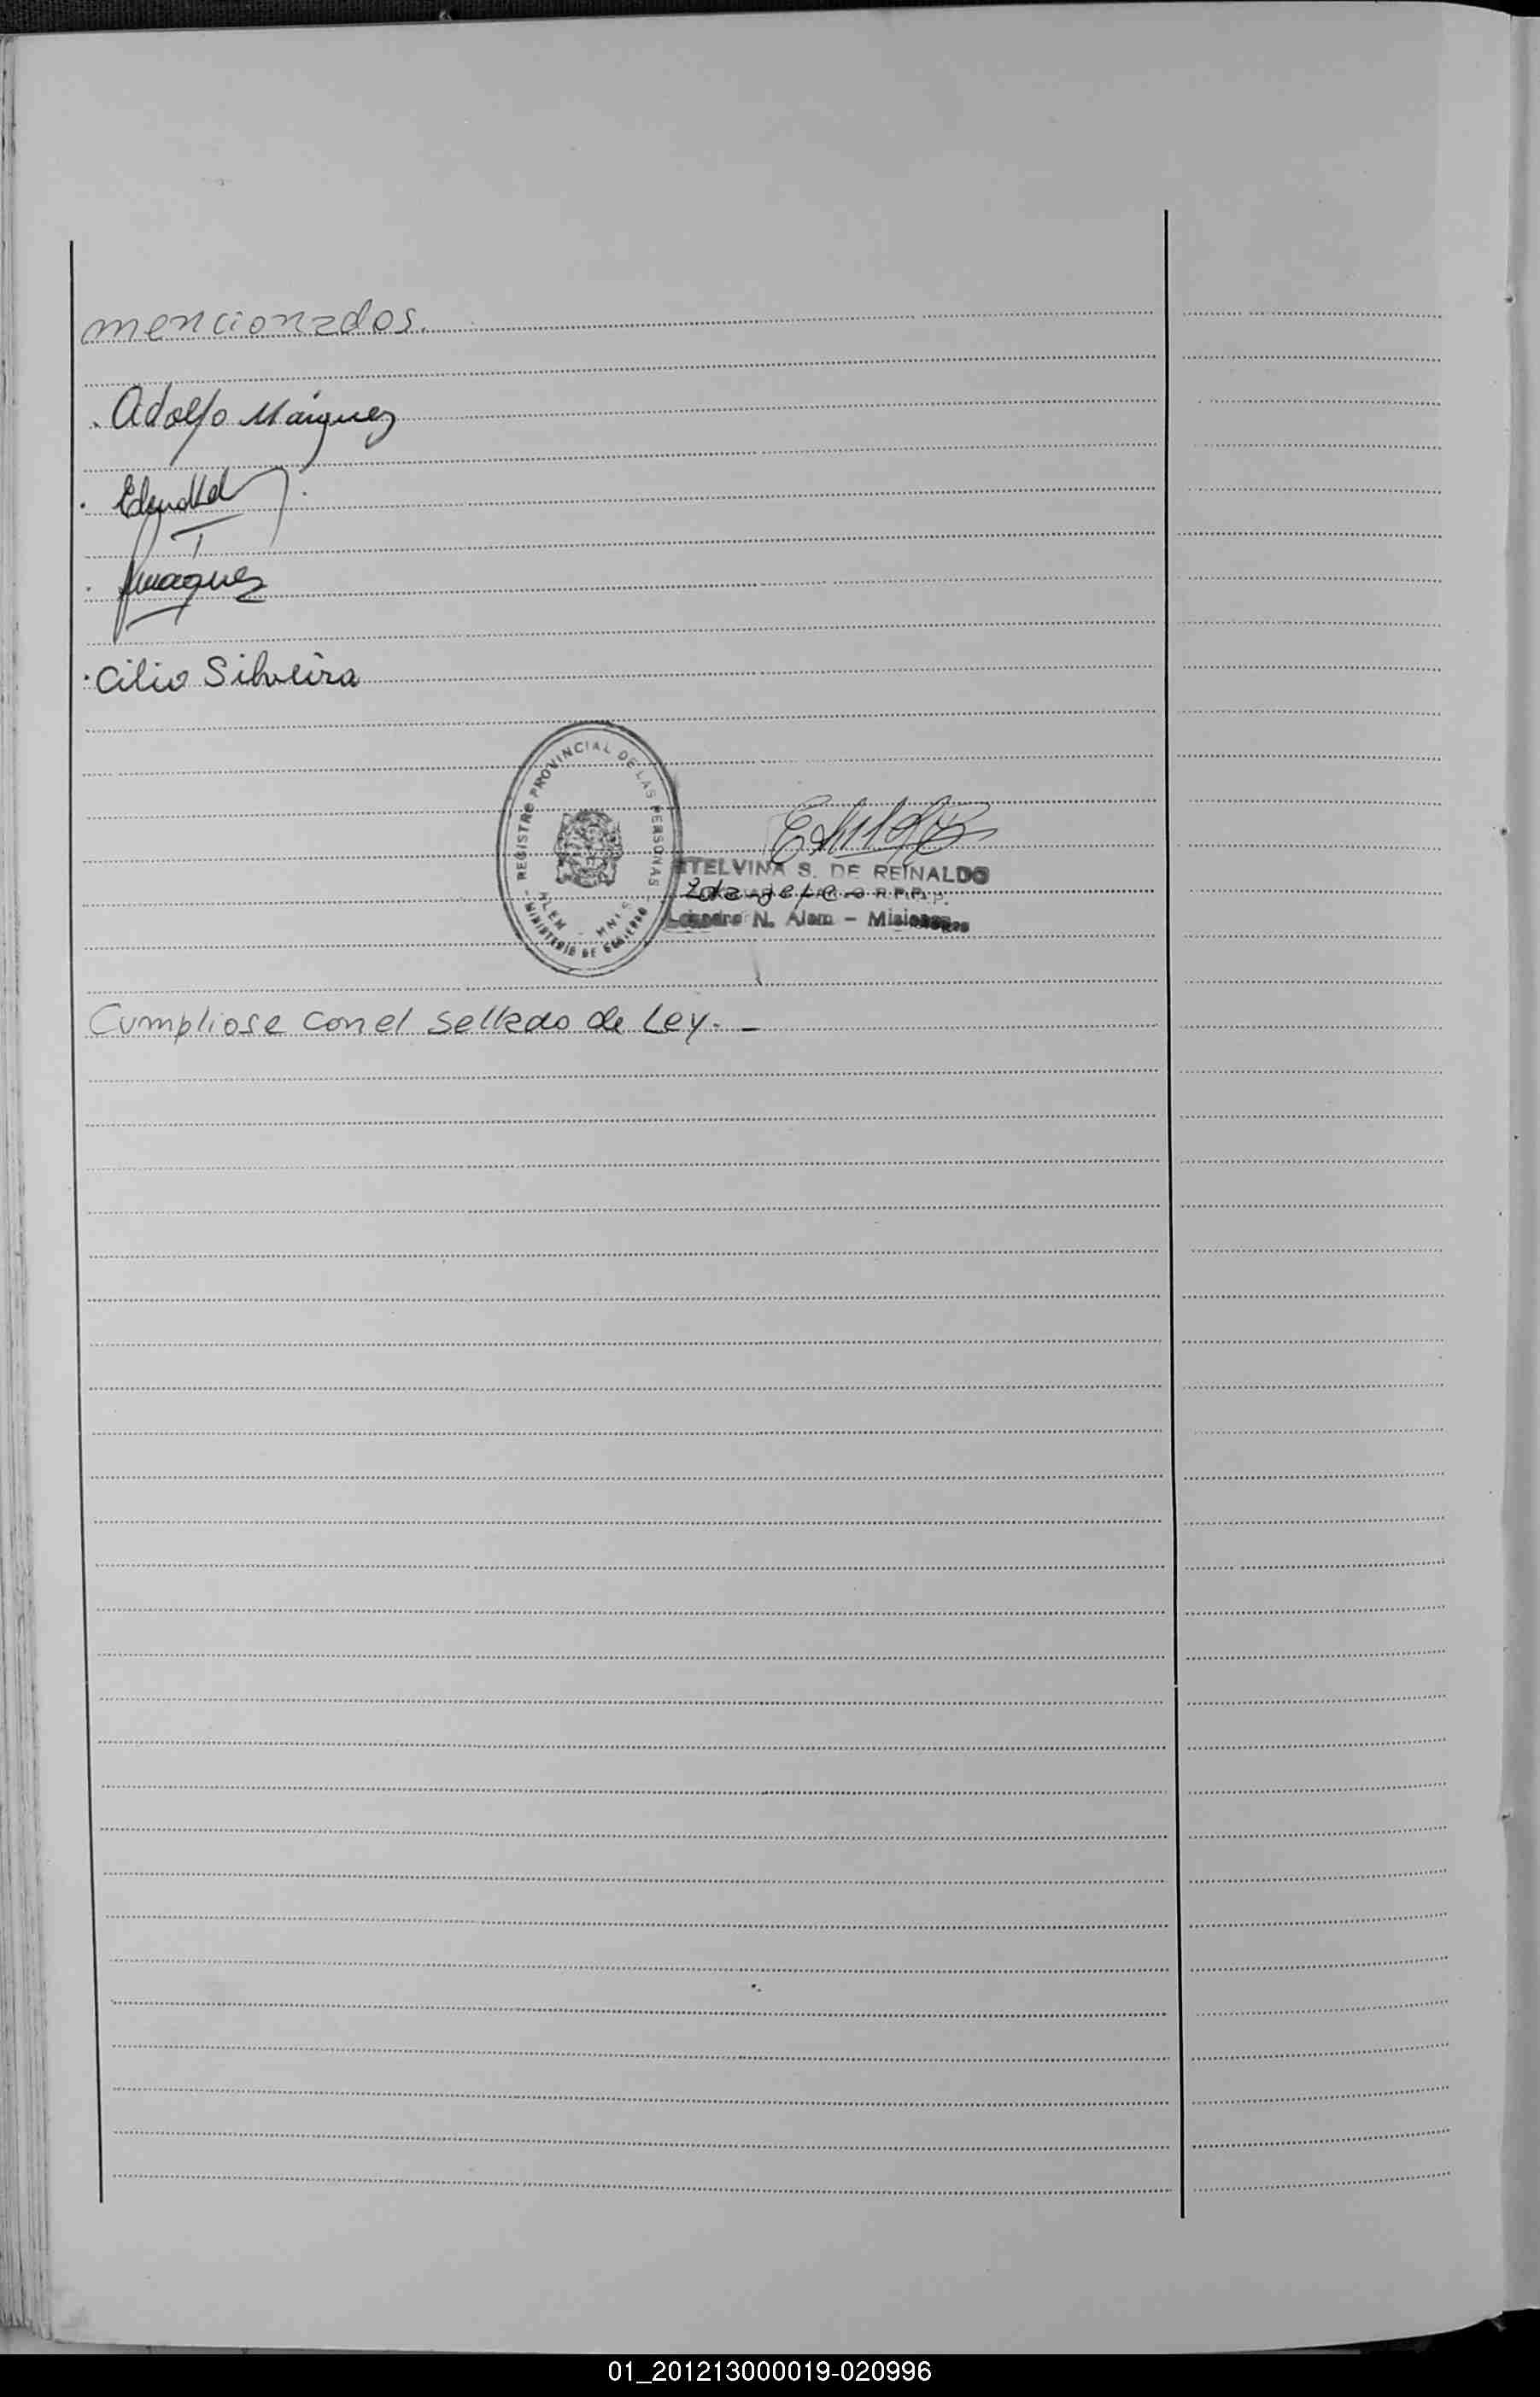 mencionados.
Adolfo Márquez
Cilio Silveira
REGISTRO PROVINCIAL DE LAS PERSONAS
MINISTERIO DE GOBIERNO
ALEM - MNES
STELVINA S. DE REINALDO
2da jefe R.P.P.
Leandro N. Alem - Misiones
Cumpliose con el sellado de Ley. -
01_201213000019-020996